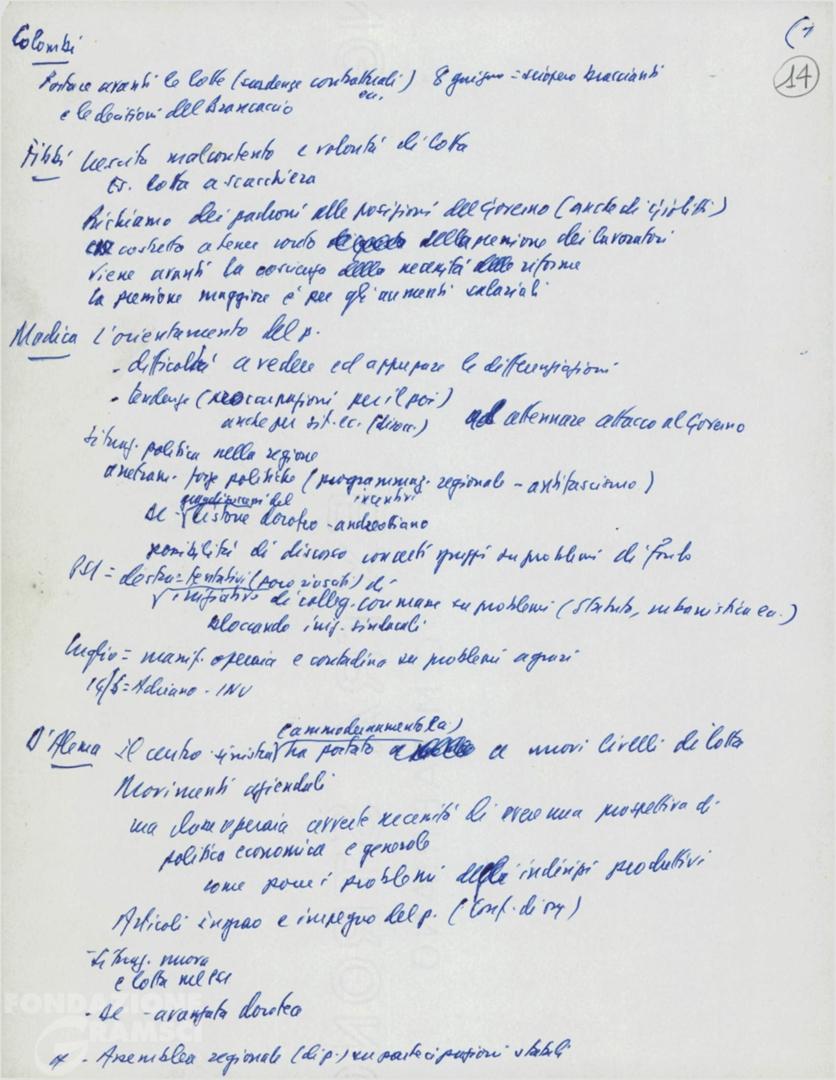 (1
14
Colombi
Portare avanti le lotte (scadenze contrattuali) 8 giugno = sciopero braccianti
ecc.
e le decisioni del Brancaccio
Fibbi Crescita malcontento e volontà di lotta
Es. lotta a scacchiera
Richiamo dei padroni alle posizioni del Governo (anche di Giolitti)
costretto a tener conto della pressione dei lavoratori
viene avanti la coscienza della necessità delle riforme
la pressione maggiore è per gli aumenti salariali
Modica L'orientamento del p.
- difficoltà a vedere ed appurare le differenziazioni
- tendenze (preoccupazioni per il poi)
anche per sit. ec. ad attenuare attacco al Governo
Situaz. politica nella regione
forze politiche (programmaz. regionale - antifascismo)
incentivi
DC - doroteo - andreottiano
possibilità di discorso con certi gruppi su problemi di fondo
PSI = destra = tentativi (poco riusciti) di
iniziative di colleg. comune su problemi (Statuto, urbanistica ecc.)
bloccando iniz. sindacali
Luglio = manif. operaia e contadina su problemi agrari
(ammodernamento ec.)
D'Alema Il centro-sinistra ha portato a nuovi livelli di lotta
Movimenti aziendali
ma classe operaia avverte necessità di avere una prospettiva di
politica economica e generale
come porre i problemi degli indirizzi produttivi
Articoli Ingrao e impegno del p. (Conf. di org)
- Situaz. nuova
e lotta nel PSI
- DC - avanzata dorotea
- Assemblea regionale (di p.) su partecipazioni statali
FONDAZIONE
GRAMSCI